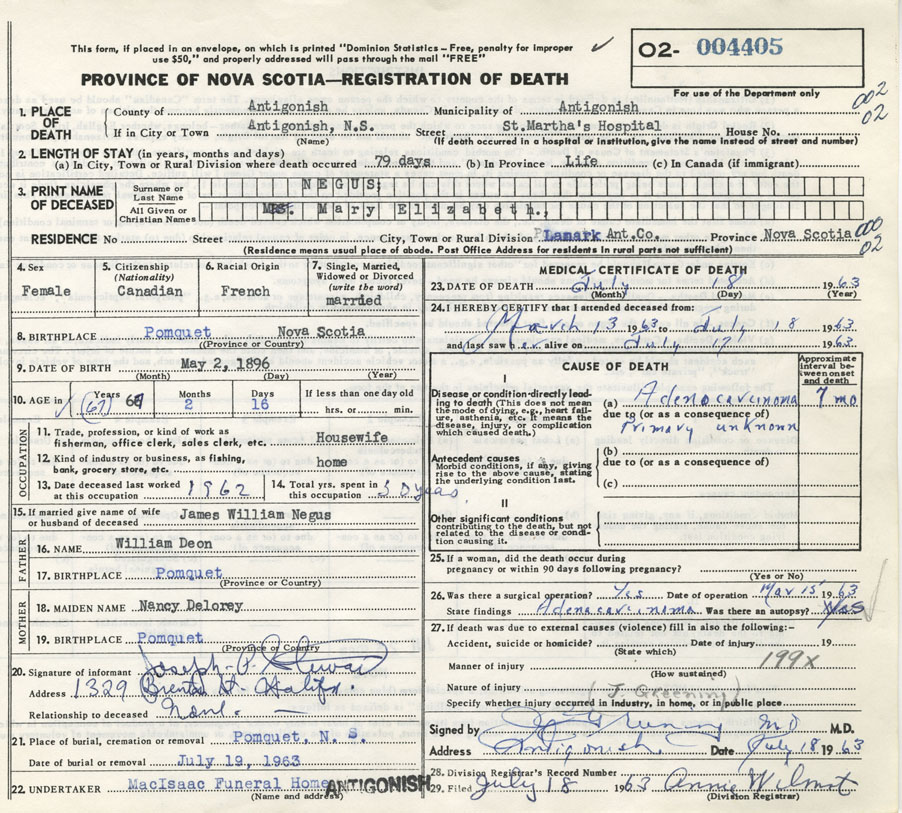 This form, if placed in an envelope, on which is printed "Dominion Statistics—Free, penalty for improper
use $50," and properly addressed will pass through the mail "FREE"
✓
PROVINCE OF NOVA SCOTIA—REGISTRATION OF DEATH
O2- 004405
For use of the Department only
002
02
1. PLACE OF DEATH
County of Antigonish Municipality of Antigonish
If in City or Town Antigonish, N.S. Street St.Martha's Hospital House No.
(Name) (If death occurred in a hospital or institution, give the name instead of street and number)
2. LENGTH OF STAY (in years, months and days)
(a) In City, Town or Rural Division where death occurred 79 days (b) In Province Life (c) In Canada (if immigrant)
3. PRINT NAME OF DECEASED
Surname or Last Name NEGUS,
All Given or Christian Names MRS. Mary Elizabeth.,
RESIDENCE No Street City, Town or Rural Division Lamark Ant.Co. Province Nova Scotia
000
02
(Residence means usual place of abode. Post Office Address for residents in rural parts not sufficient)
4. Sex
Female
5. Citizenship (Nationality)
Canadian
6. Racial Origin
French
7. Single, Married, Widowed or Divorced (write the word)
married
8. BIRTHPLACE Pomquet Nova Scotia
(Province or Country)
9. DATE OF BIRTH May 2, 1896
(Month) (Day) (Year)
10. AGE in Years (67) Months 2 Days 16 If less than one day old hrs. or min.
OCCUPATION
11. Trade, profession, or kind of work as fisherman, office clerk, sales clerk, etc. Housewife
12. Kind of industry or business, as fishing, bank, grocery store, etc. home
13. Date deceased last worked at this occupation 1962
14. Total yrs. spent in this occupation 30 years.
15. If married give name of wife or husband of deceased James William Negus
FATHER
16. NAME William Deon
17. BIRTHPLACE Pomquet
(Province or Country)
MOTHER
18. MAIDEN NAME Nancy Delorey
19. BIRTHPLACE Pomquet
(Province or Country)
20. Signature of informant Joseph
Address 1329 St. Halifx.
Relationship to deceased None. —
21. Place of burial, cremation or removal Pomquet, N. S.
Date of burial or removal July 19, 1963
22. UNDERTAKER MacIsaac Funeral Home ANTIGONISH
(Name and address)
MEDICAL CERTIFICATE OF DEATH
23. DATE OF DEATH July 18 1963
(Month) (Day) (Year)
24. I HEREBY CERTIFY that I attended deceased from:
March 13 1963 to July 18 1963
and last saw her alive on July 17 1963
CAUSE OF DEATH
Approximate interval between onset and death
I
Disease or condition directly leading to death (This does not mean the mode of dying, e.g., heart failure, asthenia, etc. It means the disease, injury, or complication which caused death.)
(a) Adenocarcinoma 7 mo
due to (or as a consequence of)
Primary unknown
Antecedent causes
Morbid conditions, if any, giving rise to the above cause, stating the underlying condition last.
(b)
due to (or as a consequence of)
(c)
II
Other significant conditions
contributing to the death, but not related to the disease or condition causing it.
25. If a woman, did the death occur during pregnancy or within 90 days following pregnancy?
(Yes or No)
26. Was there a surgical operation? Yes Date of operation Mar 15 1963
State findings Adenocarcinoma Was there an autopsy?
27. If death was due to external causes (violence) fill in also the following:—
Accident, suicide or homicide? Date of injury 19
(State which)
Manner of injury 199x
(How sustained)
Nature of injury (J. Greening)
Specify whether injury occurred in industry, in home, or in public place
Signed by J. Greening MD M.D.
Address Antigonish. Date July 18 1963
28. Division Registrar's Record Number
29. Filed July 18 1963 Annie Wilmot
(Division Registrar)